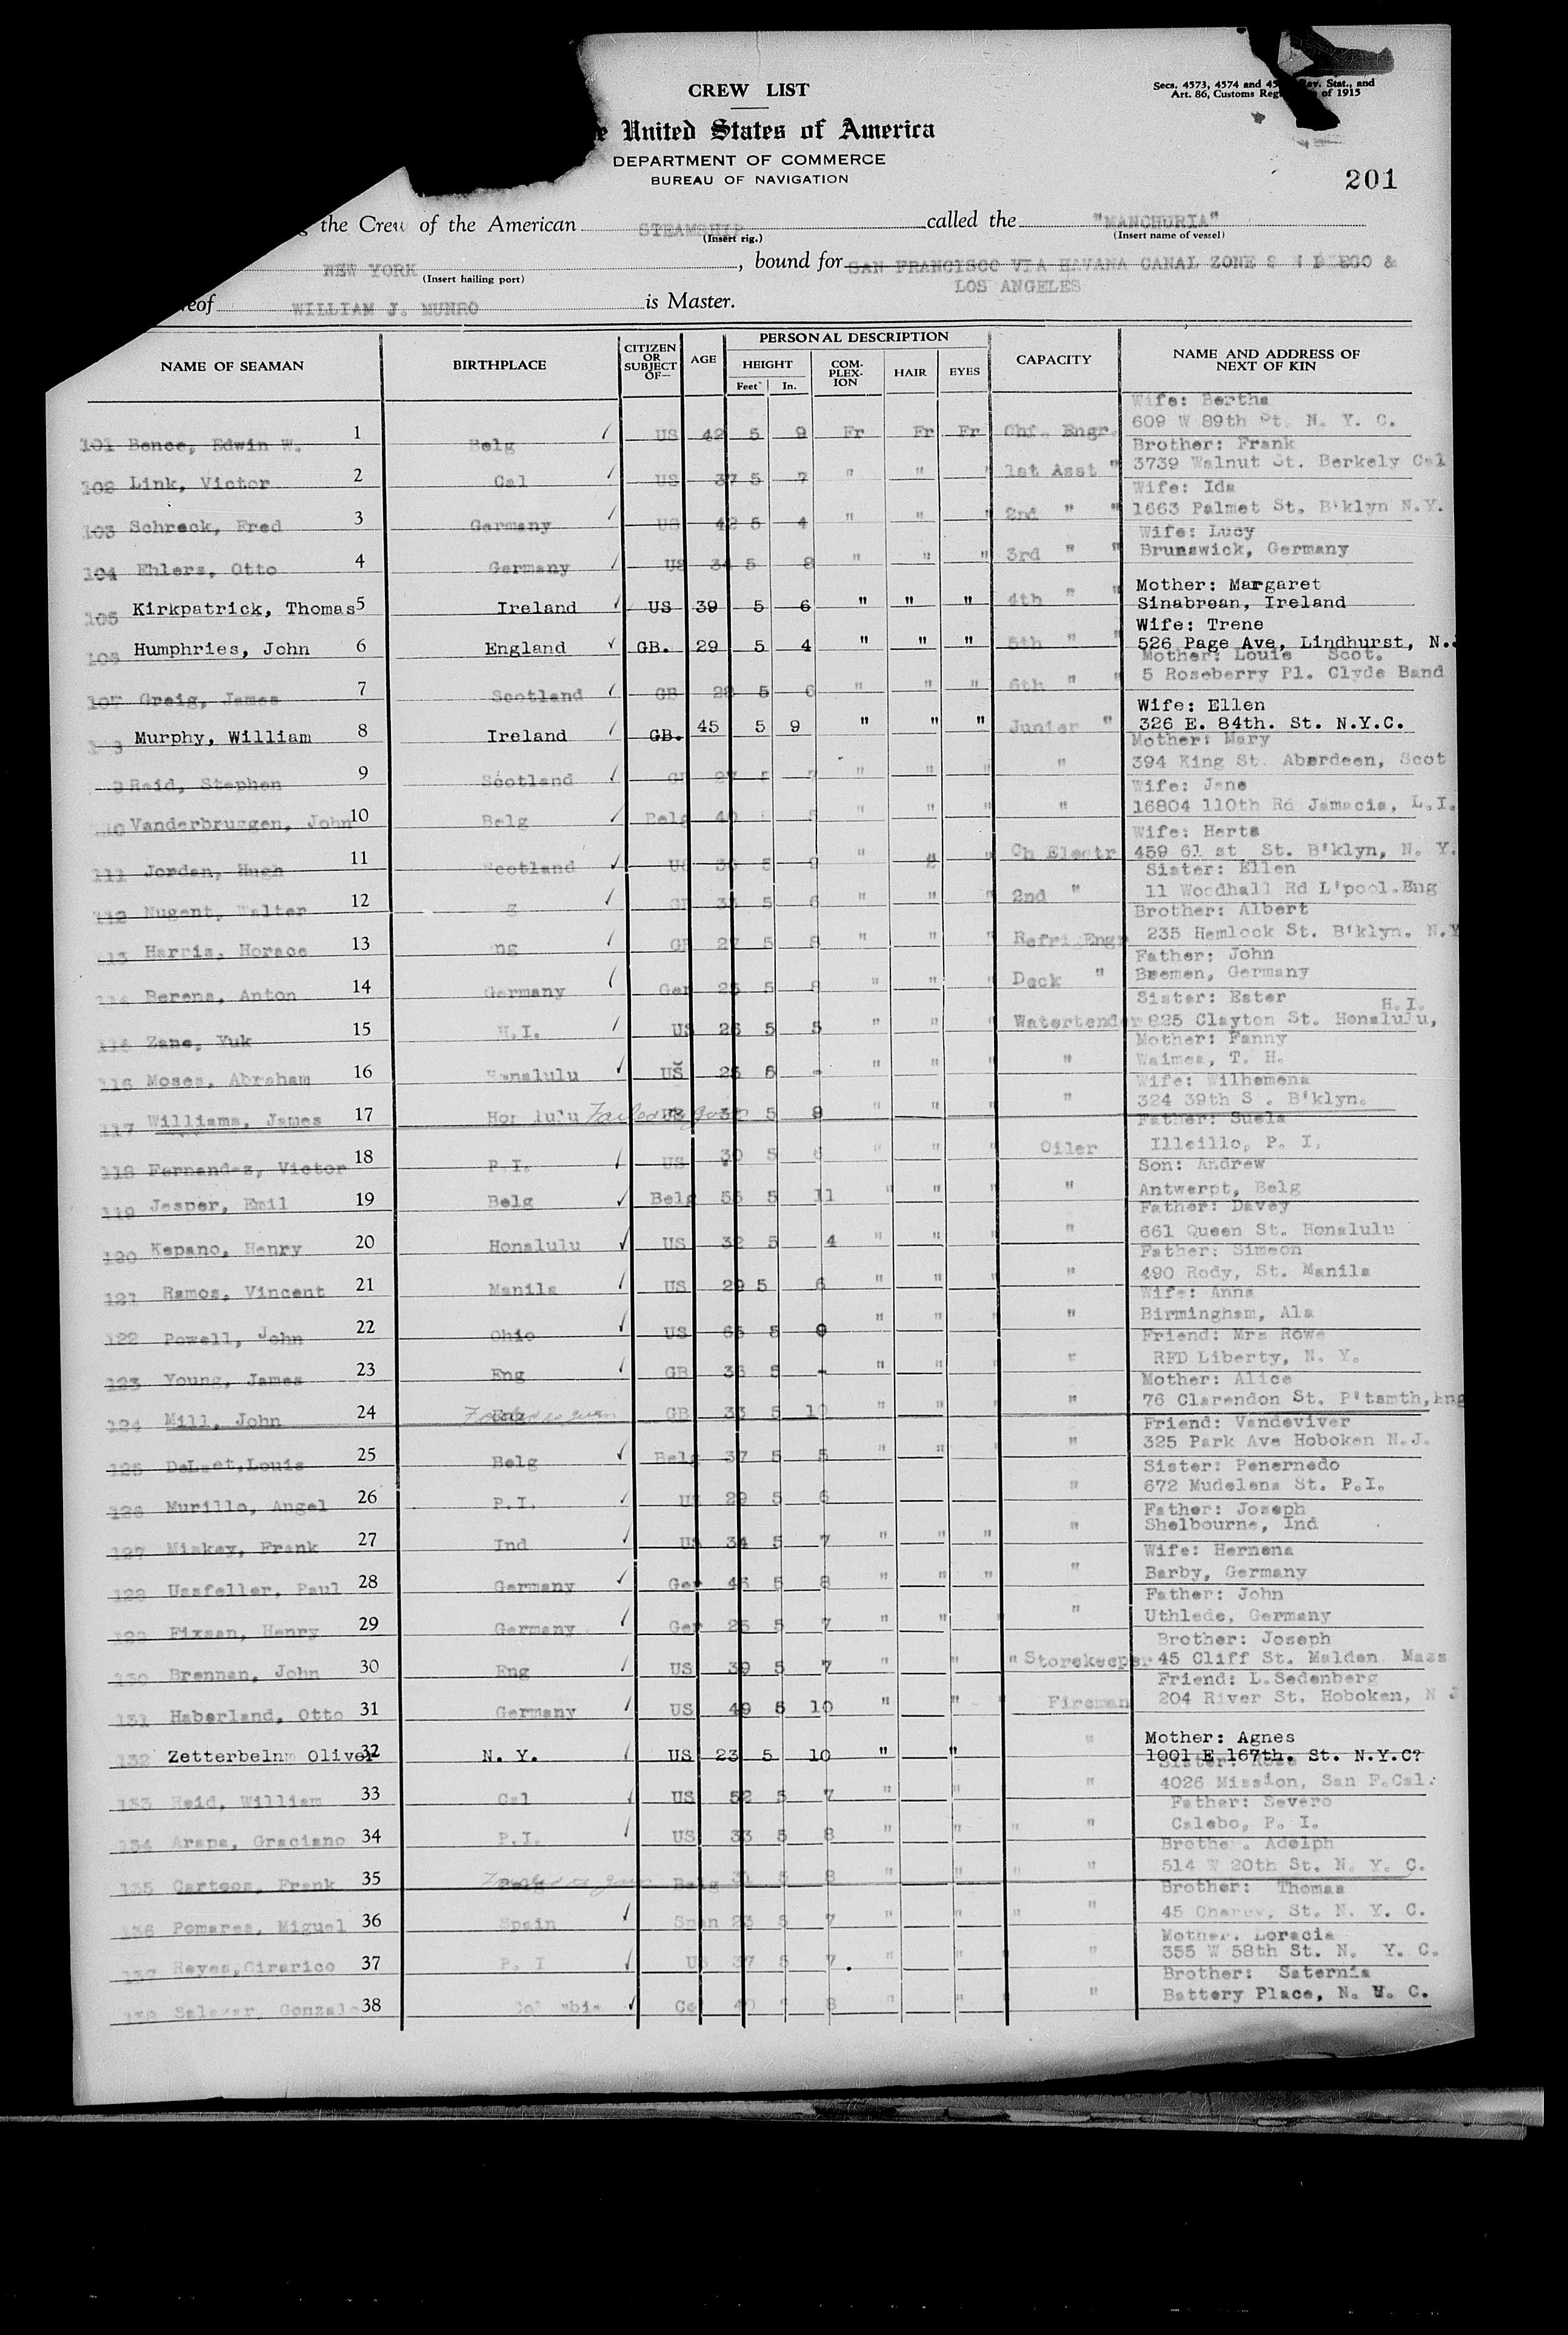 CREW LIST
Secs. 4573, 4574 and Rev. Stat., and
Art. 86, Customs of 1915
United States of America
DEPARTMENT OF COMMERCE
BUREAU OF NAVIGATION
201
the Crew of the American STEAMSHIP called the "MANCHURIA"
(Insert rig.) (Insert name of vessel)
NEW YORK, bound for SAN FRANCISCO VIA HAVANA CANAL ZONE S N DIEGO &
(Insert hailing port) LOS ANGELES
WILLIAM J. MUNRO is Master.
NAME OF SEAMAN BIRTHPLACE CITIZEN OR SUBJECT OF— AGE PERSONAL DESCRIPTION HEIGHT Feet In. COMPLEX-ION HAIR EYES CAPACITY NAME AND ADDRESS OF NEXT OF KIN
Wife: Bertha
101 Bence, Edwin W. 1 Belg ✓ US 42 5 9 Fr Fr Fr Chf. Engr. 609 W 89th St. N. Y. C.
Brother: Frank
102 Link, Victor 2 Cal ✓ US 37 5 7 " " " 1st Asst " 3739 Walnut St. Berkely Cal
Wife: Ida
103 Schreck, Fred 3 Germany ✓ US 42 5 4 " " " 2nd " " 1663 Palmet St. B'klyn N.Y.
Wife: Lucy
104 Ehlers, Otto 4 Germany ✓ US 34 5 8 " " " 3rd " " Brunswick, Germany
Mother: Margaret
105 Kirkpatrick, Thomas 5 Ireland ✓ US 39 5 6 " " " 4th " " Sinabrean, Ireland
Wife: Trene
Humphries, John 6 England ✓ GB. 29 5 4 " " " 5th " " 526 Page Ave, Lindhurst, N.J
Mother: Louie Scot.
107 Greig, James 7 Scotland ✓ GB 28 5 6 " " " 6th " " 5 Roseberry Pl. Clyde Band
Wife: Ellen
Murphy, William 8 Ireland ✓ GB. 45 5 9 " " " Junier " 326 E. 84th. St. N.Y.C.
Mother: Mary
9 Reid, Stephen 9 Scotland ✓ GB 27 5 7 " " " " 394 King St. Aberdeen, Scot
Wife: Jane
Vanderbruggen, John 10 Belg ✓ Belg 40 5 " " " " 16804 110th Rd Jamacia, L.I.
Wife: Herta
111 Jordan, Hugh 11 Scotland ✓ US 5 " " " Ch Electr 459 61 st St. B'klyn, N. Y.
Sister: Ellen
112 Nugent, Walter 12 ✓ GB 5 6 " " " 2nd " 11 Woodhall Rd L'pool.Eng
Brother: Albert
113 Harris, Horace 13 ng ✓ GB 27 5 8 " " " Refri Engr 235 Hemlock St. B'klyn. N.Y
Father: John
Berens, Anton 14 Germany ✓ Ger 25 5 8 " " " Deck " Bremen, Germany
Sister: Ester H.I.
Zane, Yuk 15 H.I. ✓ US 26 5 5 " " " Watertender 825 Clayton St. Honalulu,
Mother: Fanny
116 Moses, Abraham 16 Honalulu ✓ US 25 6 - " " " " Waimea, T. H.
Wife: Wilhemena
117 Williams, James 17 Hon lulu Failed to join 5 9 " " " " 324 39th St. B'klyn.
Father: Suela
118 Fernandez, Victor 18 P.I. ✓ US 30 5 " " " Oiler Illeillo, P. I.
Son: Andrew
119 Jesper, Emil 19 Belg ✓ Belg 55 5 11 " " " " Antwerpt, Belg
Father: Davey
120 Kepano, Henry 20 Honalulu ✓ US 32 5 4 " " " " 661 Queen St. Honalulu
Father: Simeon
121 Ramos, Vincent 21 Manila ✓ US 29 5 6 " " " " 490 Rody, St. Manila
Wife: Anna
122 Powell, John 22 Ohio ✓ US 5 9 " " " " Birmingham, Ala
Friend: Mrs Rowe
123 Young, James 23 Eng ✓ GB 36 5 - " " " " RFD Liberty, N. Y.
Mother: Alice
124 Mill, John 24 Eng Failed to join GB 33 5 10 " " " " 76 Clarendon St. P'tsmth,Eng
Friend: Vandeviver
125 DeLaet,Louis 25 Belg ✓ Belg 37 5 5 " " " " 325 Park Ave Hoboken N.J.
Sister: Penernedo
126 Murillo, Angel 26 P.I. ✓ US 29 5 6 " 672 Mudelena St. P.I.
Father: Joseph
127 Miskey, Frank 27 Ind ✓ US 34 5 7 " " " " Shelbourne, Ind
Wife: Hernena
128 Ussfeller, Paul 28 Germany ✓ Ger 45 5 8 " " " " Barby, Germany
Father: John
129 Fixsen, Henry 29 Germany ✓ Ger 25 5 7 " " " " Uthlede, Germany
Brother: Joseph
130 Brennan, John 30 Eng ✓ US 39 5 7 " " " Storekeeper 45 Cliff St. Malden Mass
Friend: L.Sedenberg
131 Haberland, Otto 31 Germany ✓ US 49 5 10 " " Fireman 204 River St. Hoboken, N J
Mother: Agnes
132 Zetterbelnm Oliver 32 N. Y. ✓ US 23 5 10 " " " 1001 E 167th. St. N.Y.C?
Sister: Rose
133 Reid, William 33 Cal ✓ US 52 5 7 " " " 4026 Mission, San F.Cal.
Father: Severo
134 Arapa, Graciano 34 P.I. ✓ US 33 5 8 " " " " Calebo, P. I.
Brother. Adolph
135 Cartoos, Frank 35 Belg Failed to join Belg 31 5 8 " " " " 514 W 20th St. N. Y. C.
Brother: Thomas
136 Pomares, Miguel 36 Spain ✓ Span 23 5 7 " " " " 45 St. N. Y. C.
Mother. Loracia
137 Reyes,Cirarico 37 P. I ✓ US 37 5 7 " " " 355 W 58th St. N. Y. C.
Brother: Saternia
Salazar, Gonzalo 38 ✓ 8 " " " Battery Place, N. Y. C.